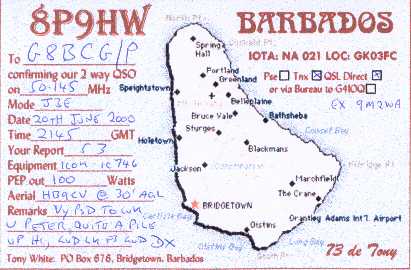 8P9HW BARBADOS
IOTA: NA 021 LOC: GK03FC
To G8BCG/P
confirming our 2 way QSO
on 50.145 MHz
Mode J3E
Date 20TH JUNE 2000
Time 2145 GMT
Your Report 53
Equipment ICOM - IC746
PEP out 100 Watts
Aerial HB9CV @ 30' AGL
Remarks VY GD TO WK
U PETER, QUITE A PILE
UP HI, GUD LK ES GUD DX
Tony White. PO Box 676, Bridgetown. Barbados
Pse Tnx QSL Direct
or via Bureau to G4IOQ
EX 9M2WA
North Pt.
Spring Hall
Portland
Greenland
Speightstown
Belleplaine
Bruce Vale
Bathsheba
Sturges
Holetown
Blackmans
Jackson
Marchfield
The Crane
BRIDGETOWN
Grantley Adams Int'l. Airport
Carlisle Bay
Oistins
Oistins Bay
Long Bay
South Pt.
73 de Tony